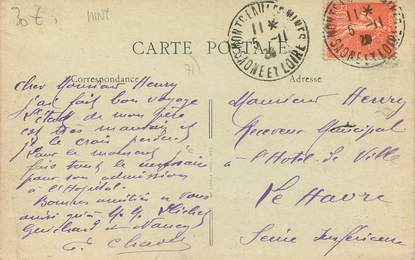 30€
MINT
71)
CARTE POSTALE
MONTCEAU-LES-MINES
SAONE ET LOIRE
11 *
5-11
MONTCEAU-LES-MINES
SAONE ET LOIRE
11 *
5-11
Correspondance
Adresse
Cher Monsieur Henry
J'ai fait bon voyage
L'état de mon père
est très mauvais et
je le crois perdu
Pour le moment je
fais tout le nécessaire
pour son admission
à l'Hôpital.
Bonnes amitiés à vous
ainsi qu'à MM.
Guichard et Nancy
Monsieur Henry
Receveur Municipal
à l'Hotel de Ville
Le Havre
Seine Inférieure